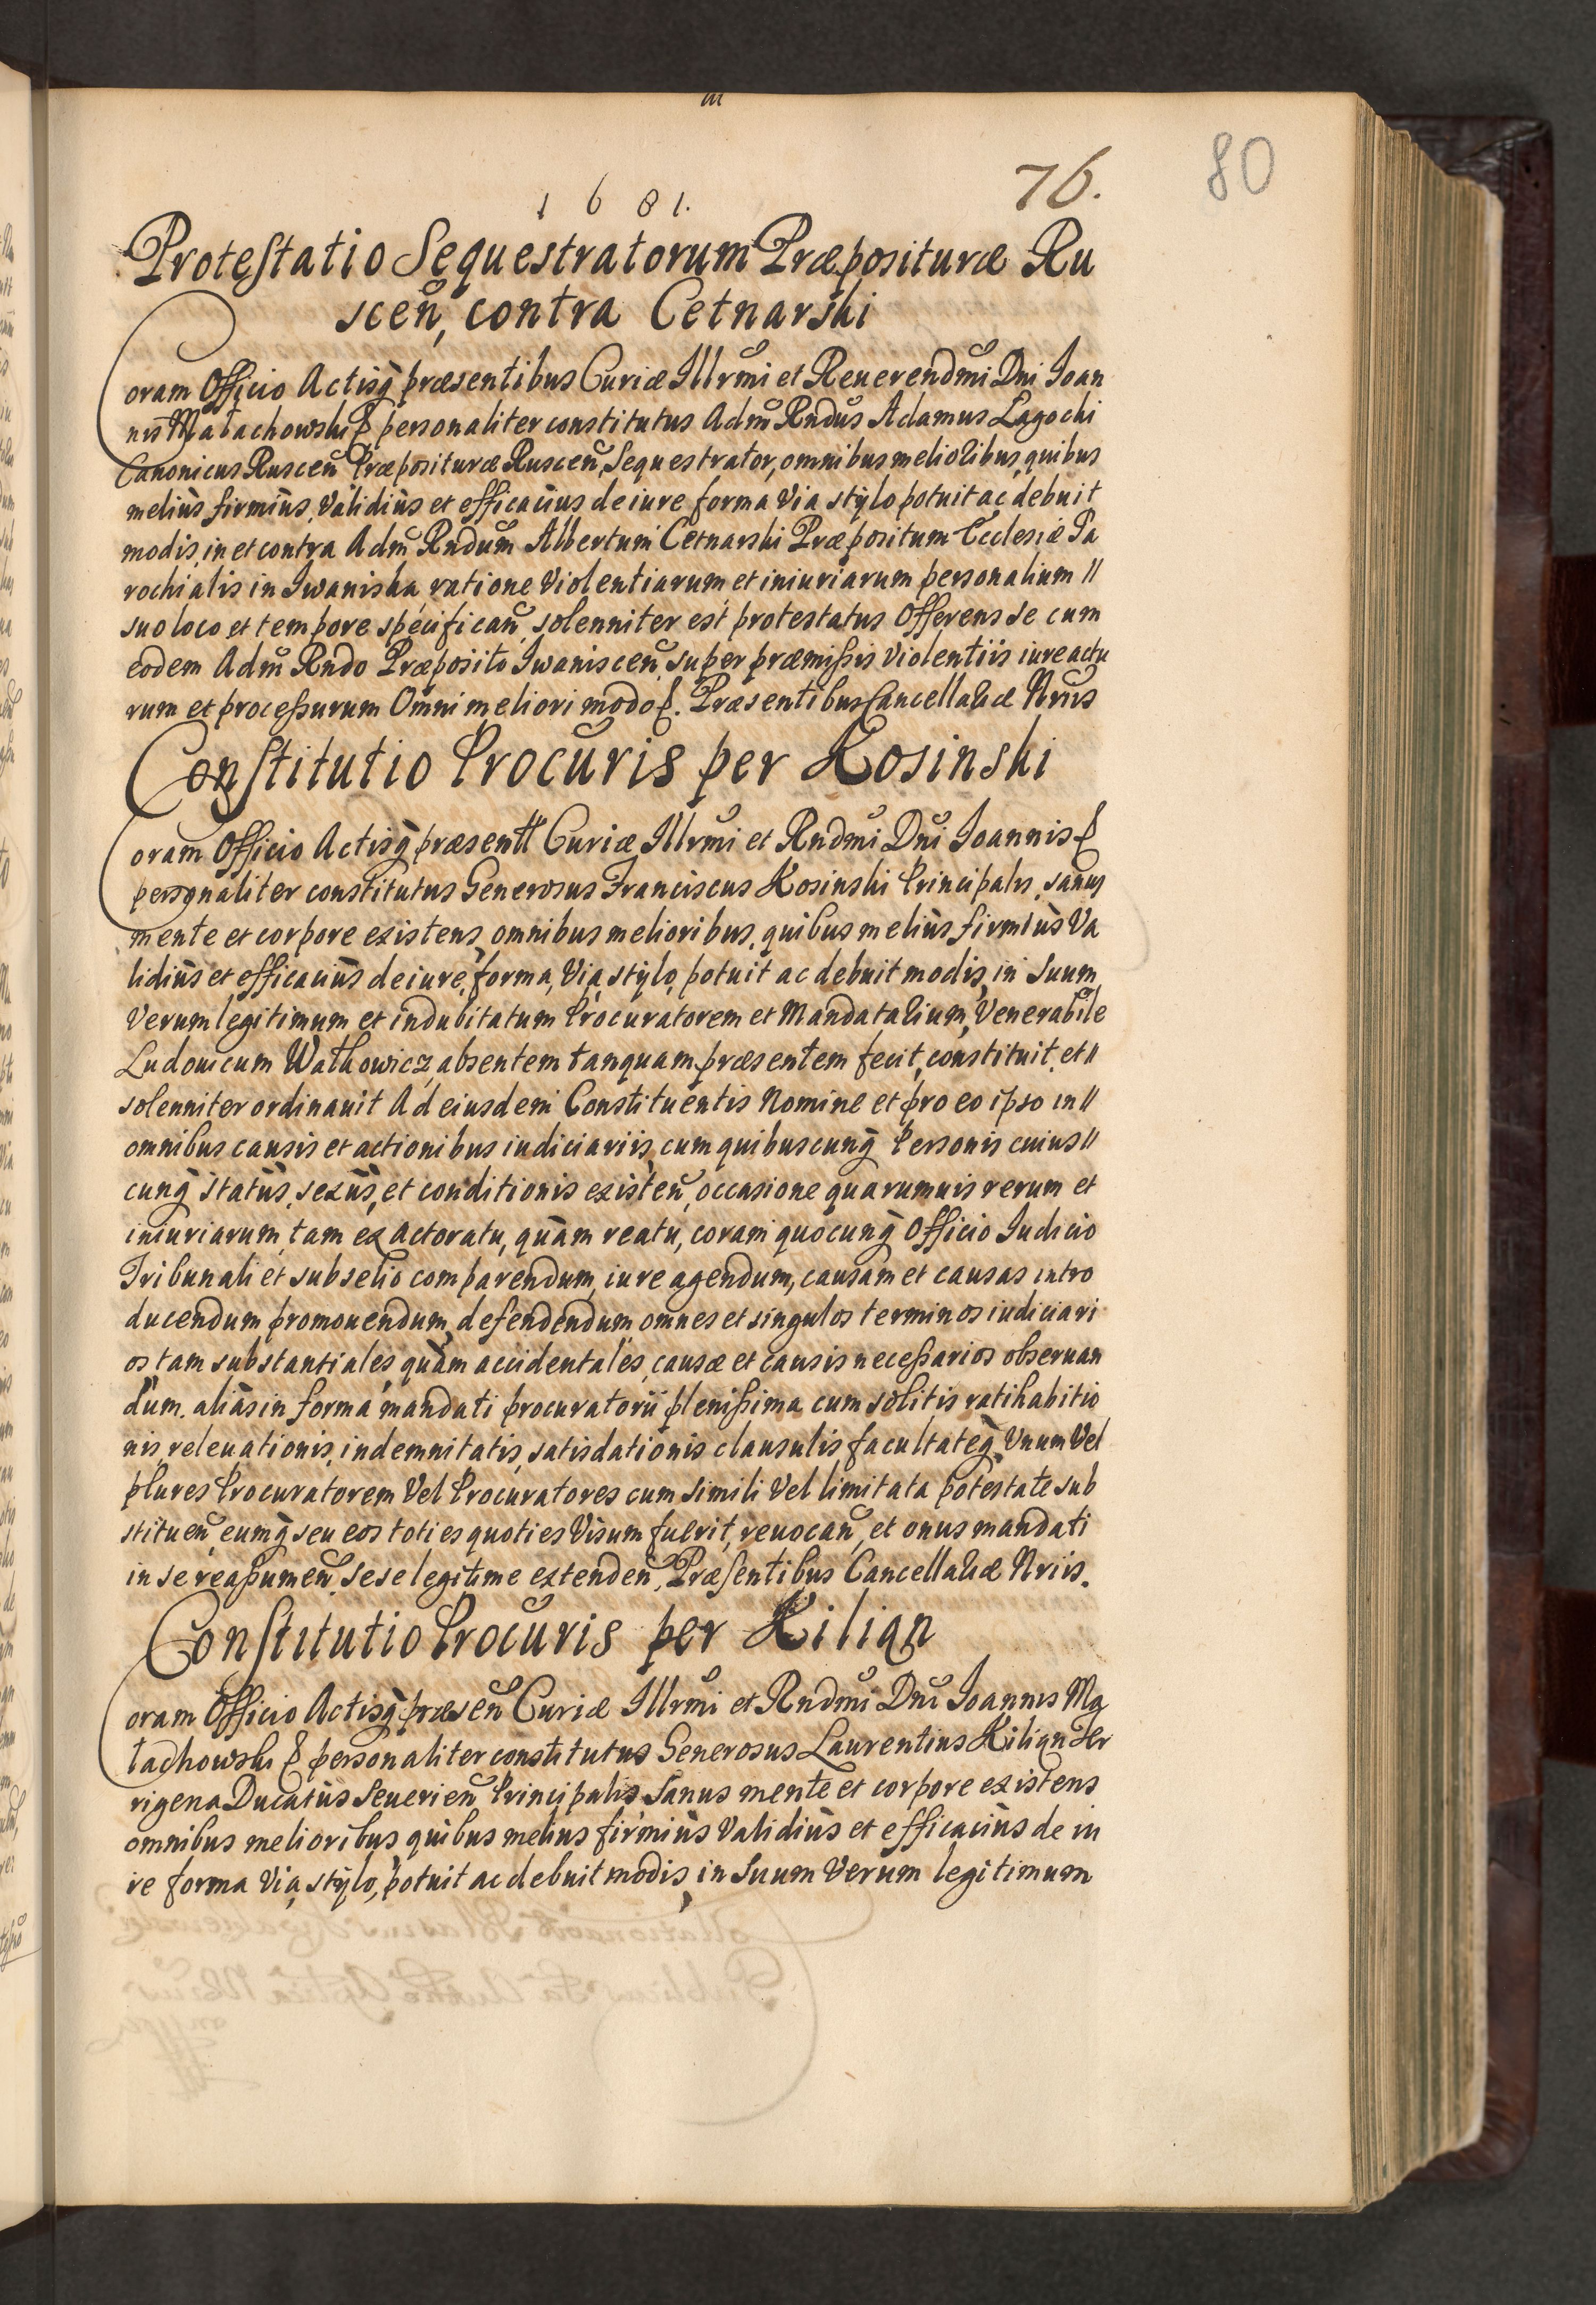 76.
80
1681.
Protestatio Sequestratorum Præposituræ Ru
scen̄, contra Cetnarski
Coram Officio Actisq̀ præsentibus Curiæ Illrm̄i et Reuerendm̄i Dn̄i Ioan
nis Małachowski personaliter constitutus Adm̄ Rndūs Adamus Łagocki
Canonicus Ruscen̄ Præposituræ Ruscen̄ Sequestrator, omnibus melioribus, quibus
meliùs firmiùs, validiùs et efficaciùs de iure forma via stÿlo potuit ac debuit
modis, in et contra Adm̄ Rndūm Albertum Cetnarski Præpositum Ecclesiæ Pa
rochialis in Iwaniska, ratione violentiarum et iniuriarum personalium //
suo loco et tempore specifican̄, solenniter est protestatus Offerens se cum
eodem Adm̄ Rndo Præposito Iwaniscen̄, super præmissis violentiis iure actu
rum et processurum Omni meliori modo. Præsentibus Cancellariæ Nrīis
Constitutio Procūris per Kosinski
Coram Officio Actisq̀ præsentt Curiæ Illrm̄i et Rndm̄i Dn̄i Ioannis
personaliter constitutus Generosus Franciscus Kosinski Principalis, sanus
mente et corpore existens, omnibus melioribus, quibus meliùs firmiùs va
lidiùs et efficaciùs de iure, forma, via, stÿlo, potuit ac debuit modis, in suum
verum legitimum et indubitatum Procuratorem et Mandatarium, Venerabile
Ludouicum Wathowicz absentem tanquam præsentem fecit, constituit, et //
solenniter ordinauit Ad eiusdem Constituentis Nomine et pro eo ipso in //
omnibus causis et actionibus iudiciariis, cum quibuscunq̀ Personis cuius //
cunq̀ statûs, sexûs, et conditionis existen̄, occasione quarumuis rerum et
iniuriarum, tam ex actoratu, quàm reatu, coram quocunq̀ Officio Iudicio
Tribunali et subselio comparendum, iure agendum, causam et causas intro
ducendum promouendum, defendendum omnes et singulos terminos iudiciari
os tam substantiales, quàm accidentales, causæ et causis necessarios obseruan
dum. aliàs in forma mandati procuratorii plenissima cum solitis ratihabitio
nis, releuationis, indemnitatis, satisdationis clausulis facultateq̀ Vnum Vel
plures Procuratorem Vel Procuratores cum simili Vel limitata potestate sub
stituen̄, eumq̀ seu eos toties quoties Visum fuerit, reuocan̄, et onus mandati
in se reassumen̄. Sese legitime extenden̄. Præsentibus Cancellariæ Nriis.
Constitutio Procūris per Kilian
Coram Officio Actisq̀ præsen̄ Curiæ Illrm̄i et Rndm̄i Dn̄i Ioannis Ma
łachowski personaliter constitutus Generosus Laurentius Kilian Ter
rigena Ducatûs Seuerien̄ Principalis Sanus mente et corpore existens
omnibus melioribus, quibus melius firmiùs validiùs et efficaciùs de iu
re forma via, stÿlo, potuit ac debuit modis, in suum verum legitimum